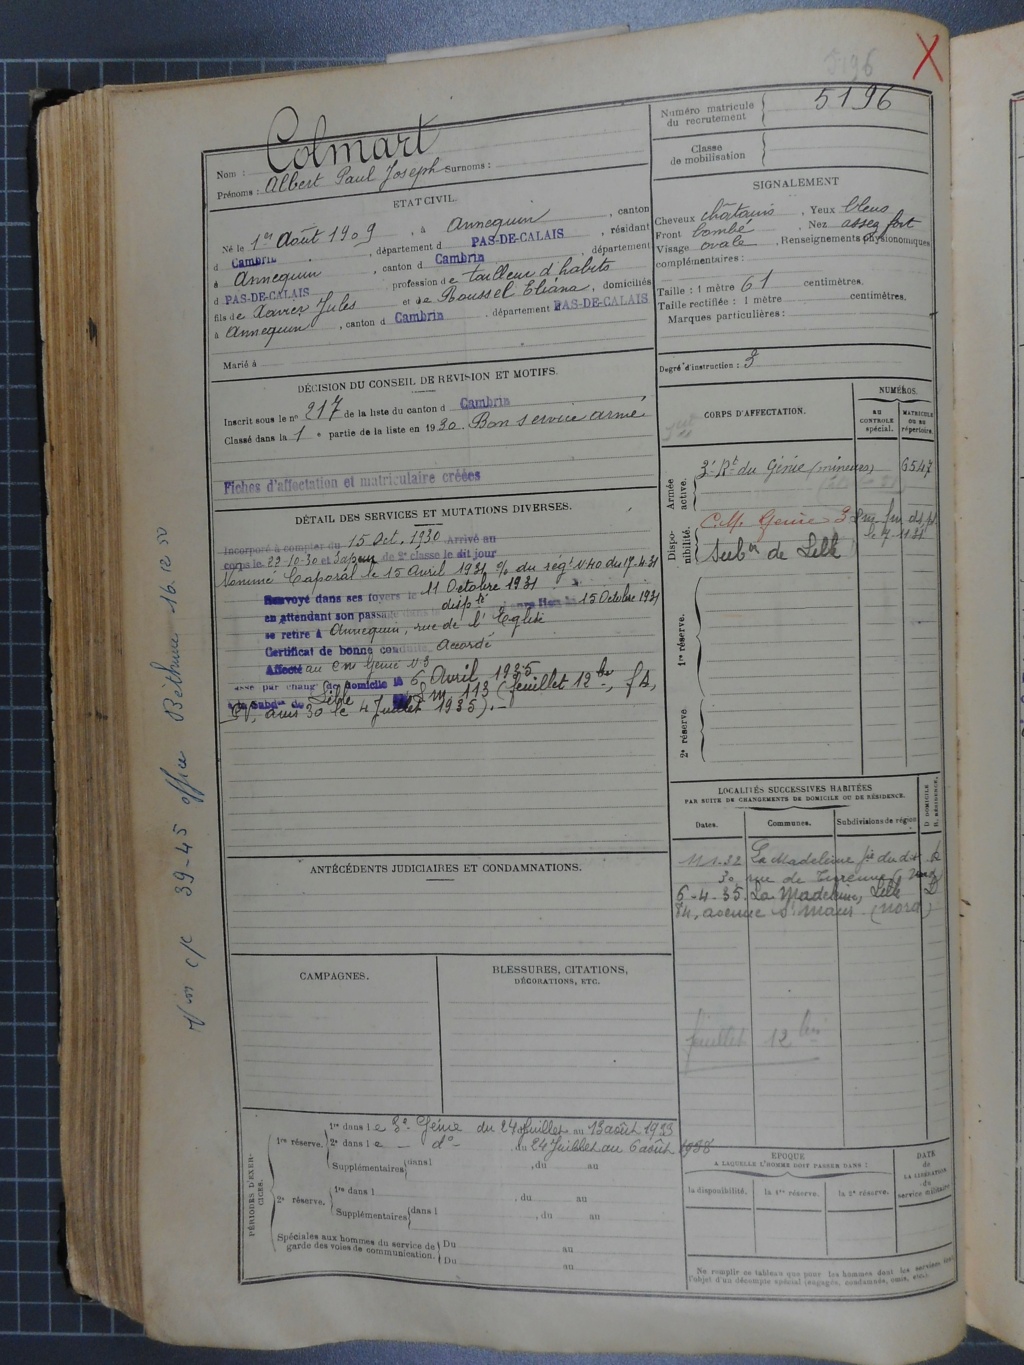 5196
Numéro matricule du recrutement
5196
Classe de mobilisation
Nom : Colmart
Prénoms : Albert Paul Joseph Surnoms :
ETAT CIVIL.
Né le 1er Août 1909, à Annequin, canton
d Cambrin, département d PAS-DE-CALAIS, résidant
à Annequin, canton d Cambrin, département
d PAS-DE-CALAIS profession de tailleur d'habits
fils de Xavier Jules et de Roussel Eliana, domiciliés
à Annequin, canton d Cambrin, département PAS-DE-CALAIS
Marié à
SIGNALEMENT
Cheveux châtains, Yeux bleus
Front bombé, Nez assez fort
Visage ovale, Renseignements physionomiques
complémentaires :
Taille : 1 mètre 61 centimètres.
Taille rectifiée : 1 mètre centimètres.
Marques particulières :
Degré d'instruction : 3
DÉCISION DU CONSEIL DE REVISION ET MOTIFS.
Inscrit sous le no 217 de la liste du canton d Cambrin
Classé dans la 1e partie de la liste en 1930. Bon service armé
Fiches d'affectation et matriculaire créées
DÉTAIL DES SERVICES ET MUTATIONS DIVERSES.
Incorporé à compter du 15 Oct. 1930 Arrivé au
corps le 22-10-30 et Sapeur de 2e classe le dit jour
Nommé Caporal le 15 Avril 1931 du régt N40 du 17-4-31
Renvoyé dans ses foyers le 11 Octobre 1931
en attendant son passage dans dispté 15 Octobre 1931
se retire à Annequin, rue de l'Eglise
Certificat de bonne conduite Accordé
Affecté au Génie N3
passé par chang. de domicile le 6 Avril 1935
à la Subdon de Lille 113 (feuillet 12 bis,
avis 30 le 4 Juillet 1935).-
CORPS D'AFFECTATION.
NUMÉROS.
AU CONTROLE spécial.
MATRICULE OU AU répertoire.
Armée active.
3e Rt du Génie (mineurs) 6547
Disponibilité.
C.M. Génie 3
Subon de Lille
1re réserve.
2e réserve.
LOCALITÉS SUCCESSIVES HABITÉES
PAR SUITE DE CHANGEMENTS DE DOMICILE OU DE RÉSIDENCE.
D DOMICILE R. RÉSIDENCE.
Dates. Communes. Subdivisions de région
La Madeleine
30, rue de Turenne
6-4-35. La Madeleine, Lille D
84, avenue St Maur (Nord)
feuillet 12 bis
ANTÉCÉDENTS JUDICIAIRES ET CONDAMNATIONS.
CAMPAGNES.
BLESSURES, CITATIONS,
DÉCORATIONS, ETC.
PÉRIODES D'EXERCICES.
1re réserve. 1re dans le 3e Génie du 24 Juillet au 13 août 1933
2e dans le - do - du 24 Juillet au 6 août 1938
Supplémentaires dans l , du au
2e réserve. 1re dans l , du au
Supplémentaires dans l , du au
Spéciales aux hommes du service de garde des voies de communication. Du au
Du au
EPOQUE
A LAQUELLE L'HOMME DOIT PASSER DANS :
DATE de LA LIBÉRATION du service militaire
la disponibilité. la 1re réserve. la 2e réserve.
Ne remplir ce tableau que pour les hommes dont les services font
l'objet d'un décompte spécial (engagés, condamnés, omis, etc.).
39-45 office Béthune 16.12.50